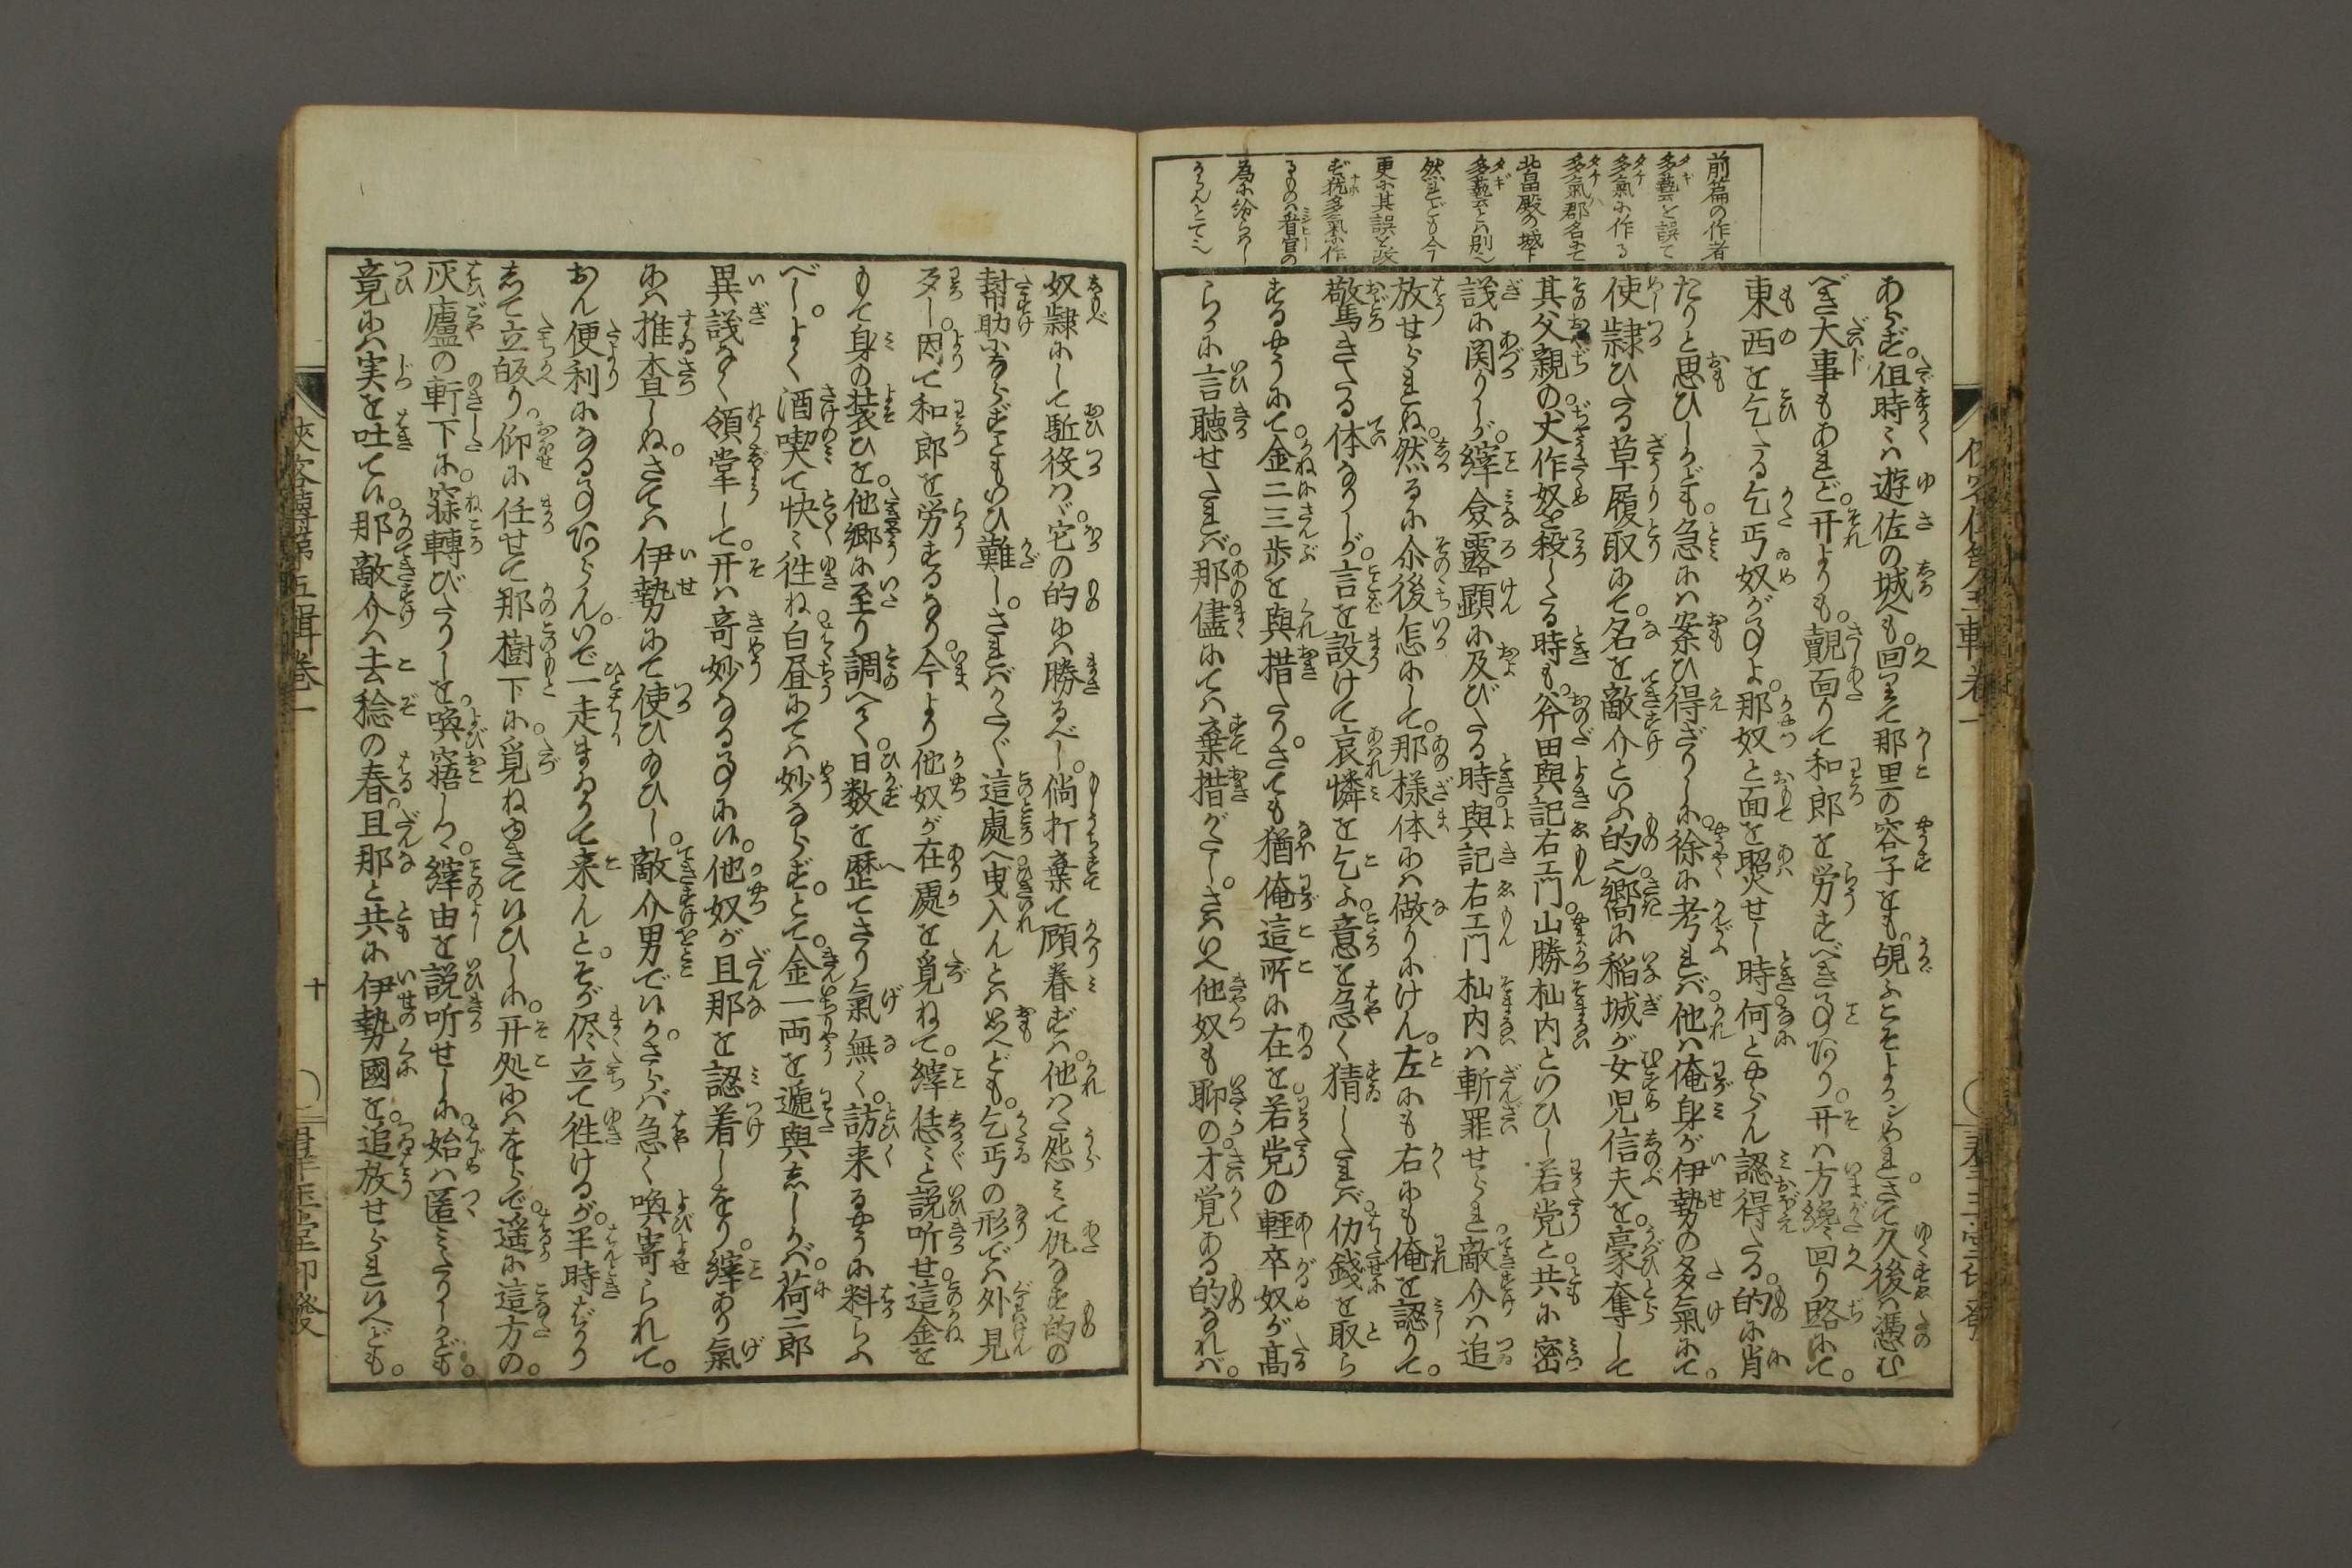 前篇の作者
多藝を誤て
多氣に作る
多氣ハ郡名にて
北畠殿の城下
多藝とは別也
然れども今
更に其誤を改
ず猶多氣に作
るものは看官の
為に紛らハし
からんとて也
あらず。但時々は遊佐の城へも。回りて那里の容子をも。覘ふこそよかンめれ。さて久後は憑む
べき大事もあれど。开よりも。觀面りて和郎を労すべき事あり。开は方纔回り路にて。
東西を乞たる乞丐奴が事よ。那奴と面を照せし時何とやらん認得たる。的に肖
たりと思ひしかども。急には案ひ得ざりしに。徐に考れバ。他は俺身が伊勢の多氣にて。
使隷ひたる草履取にて。名を敵介といふ的也。嚮に稲城が女児信夫を。豪奪して
其父親の。丈作奴を殺したる時も。斧田與記右エ門。山勝杣内といひし若党と。共に密
議に関りしが。縡僉露顕に及びたる時與記右エ門杣内は斬罪せられ。敵介は追
放せられぬ。然るに尒後怎にして。那様体には做りにけん。左にも右にも俺を認りて。
驚きたる体なりしが。言を設けて哀憐を乞ふ。意を急く猜したれバ。仂銭を取ら
するやうにて。金二三歩を與措たり。さても猶俺這所に在るを。若党の輕卒奴が高
らかに言聴せたれバ。那儘にては棄措がたし。さはいへ他奴も聊の才覚ある的なれバ。
奴隷にして駈役ハゞ。它の的には勝るべし。倘打棄て顧眷ずバ。他はた怨みて仇なす的の
幇助にならずともいひ難し。さればとて這處へ曳入んとは思へども。乞丐の形では外見
歹し。因て和郎を労するなり。今より他奴が在處を覓ねて。縡恁々と説听せ。這金を
もて身の装ひを。他郷に至り調へて。日数を歴てさり氣無く。訪来るやうに料らふ
べし。よく酒喫て快く徃ね。白昼にては妙ならず。とて。金一両を逓與ししかバ。荷二郎
異議なく領掌して。开は奇妙なる事に候。他奴が旦那を認着しをり。縡あり氣
には推査しぬ。さては伊勢にて使ひ給ひし。敵介男で候か。さらバ急く喚寄られて。
おん便利になる事あらん。いで一走まゐりて来んと。そが侭立て徃けるが。半時ばかり
して立皈り。仰に任せて那樹下に。覓ね申きて候ひしに。开処にはをらで。遥に這方の。
灰廬の軒下に。寐轉びたりしを。喚寤しつ。縡由を説听せしに。始は匿みたりしかども。
竟には実を吐て候。那敵介は去稔の春。旦那と共に伊勢國を。追放せられ候へども。
侠客傳第五輯巻一
十
群玉堂印發